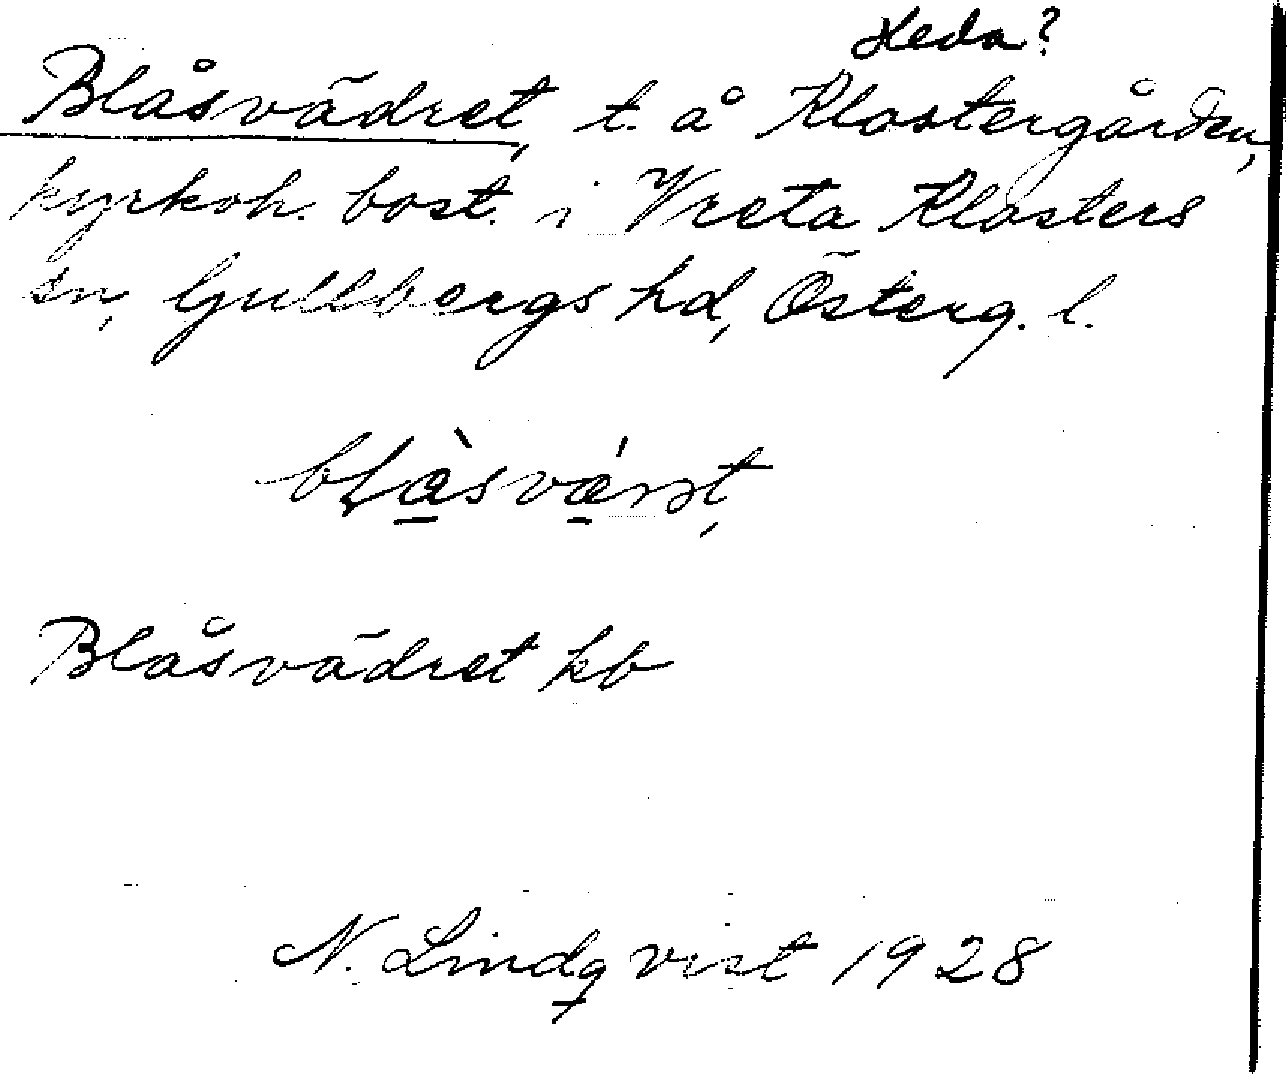 Heda?
Blåsvädret, t. å Klostergården,
kyrkoh. bost. i Vreta Klosters
sn, Gullbergs hd, Österg. l.
Blåsvädret kb
N. Lindqvist 1928